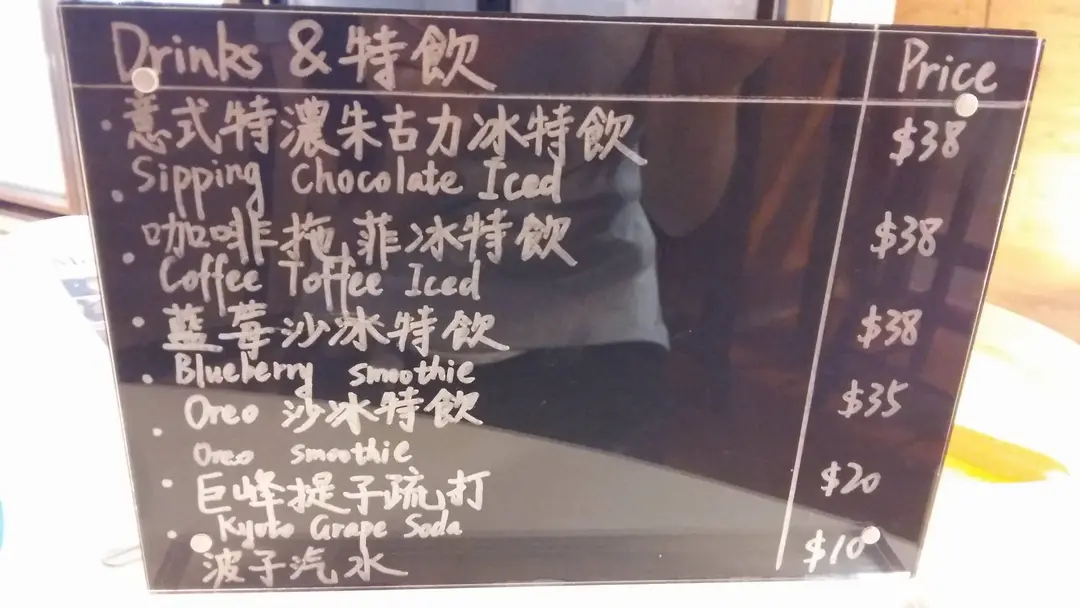 Drinks & 特飲
Price
意式特濃朱古力冰特飲
$38
Sipping Chocolate Iced
咖啡拖菲冰特飲
$38
Coffee Toffee Iced
藍莓沙冰特飲
$38
Blueberry smoothie
Oreo 沙冰特飲
$35
Oreo smoothie
巨峰提子疏打
$20
Kyoto Grape Soda
波子汽水
$10